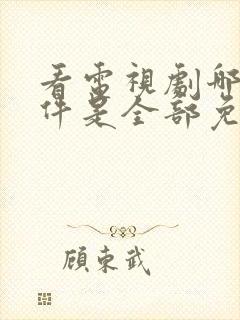 看電視劇哪
件是全部免
顾東武